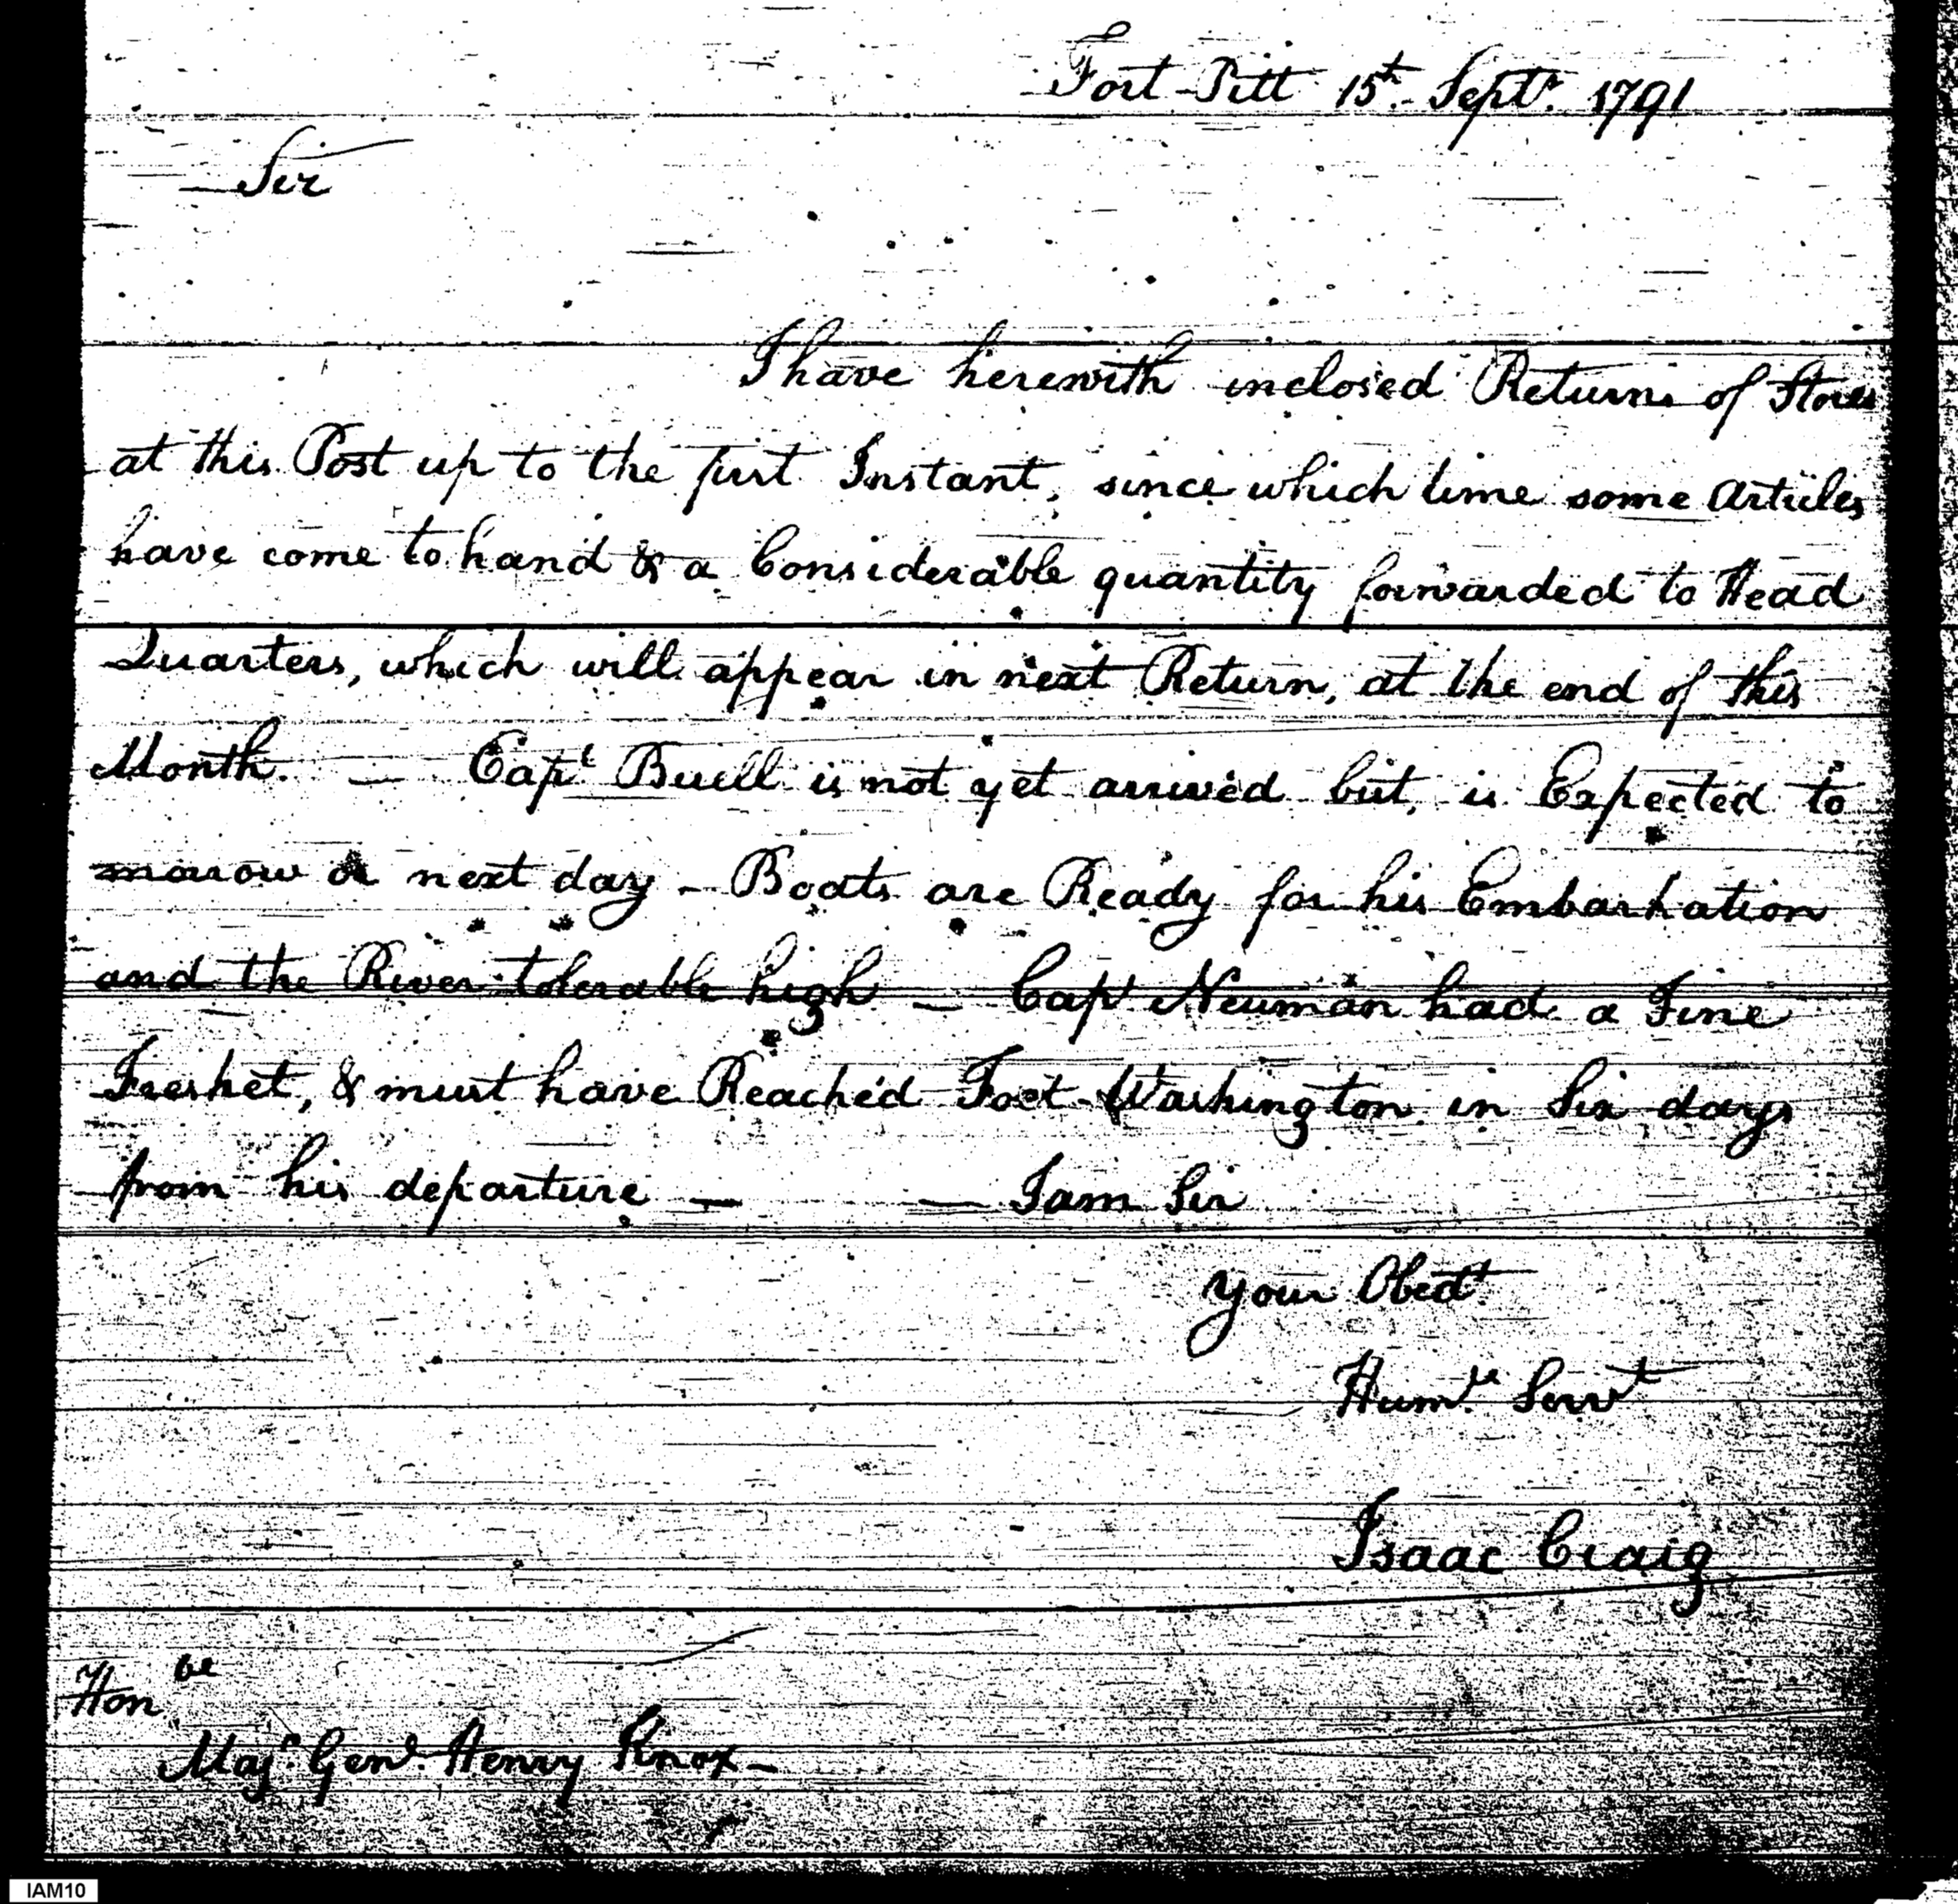 Fort Pitt 15th Septr. 1791
Sir
I have herewith inclosed Returns of Stores
at this Post up to the first Instant, since which time some Articles
have come to hand & a Considerable quantity forwarded to Head
Quarters, which will appear in next Return, at the end of this
Month. — Capt Buell is not yet arrived but, is Expected to
morrow or next day — Boats are Ready for his Embarkation
and the River tolerable high — Capt Newman had a Fine
Freshet, & must have Reached Fort Washington in Six days
from his departure — — I am Sir
Your Obedt.
Humle. Servt
Isaac Craig
Honble
Majr. Genl. Henry Knox —
IAM10